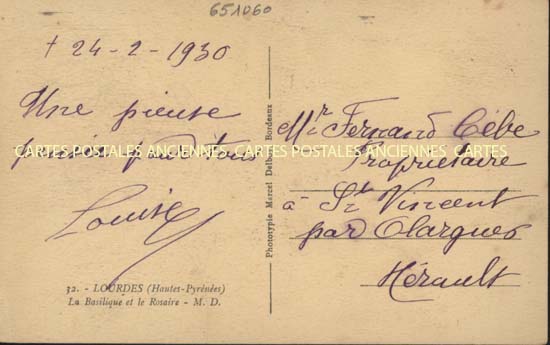 651060
+ 24-2-1930
Une pieuse
pensée pour tous
Louise
CARTES POSTALES ANCIENNES CARTES POSTALES ANCIENNES CARTES
32. - LOURDES (Hautes-Pyrénées)
La Basilique et le Rosaire - M. D.
Phototypie Marcel Delboy, Bordeaux
Mr Fernand Cèbe
Propriétaire
à St Vincent
par Olargues
Hérault